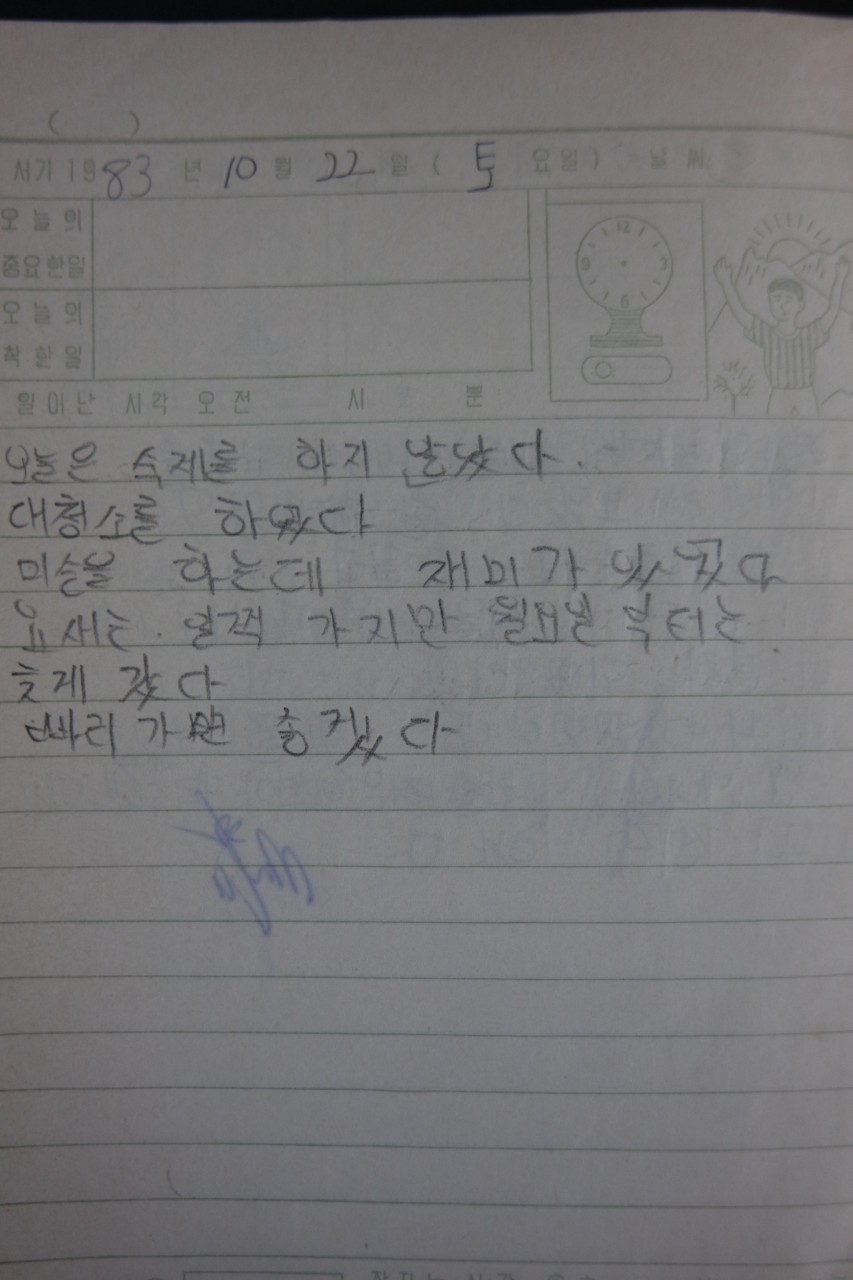 ( )
서기 1983 년 10 월 22 일 ( 토 요일 ) 날 씨
오 늘 의
중요한일
오 늘 의
착 한 일
12
9 3
6
일어난 시각 오전 시 분
오늘은 숙제를 하지 낞났다.
대청소를 하였다
미술을 하는데 재미가 있었다
요새는 일찍 가지만 월요일 부터는
늣게 갔다
빠리 가면 좋겠다